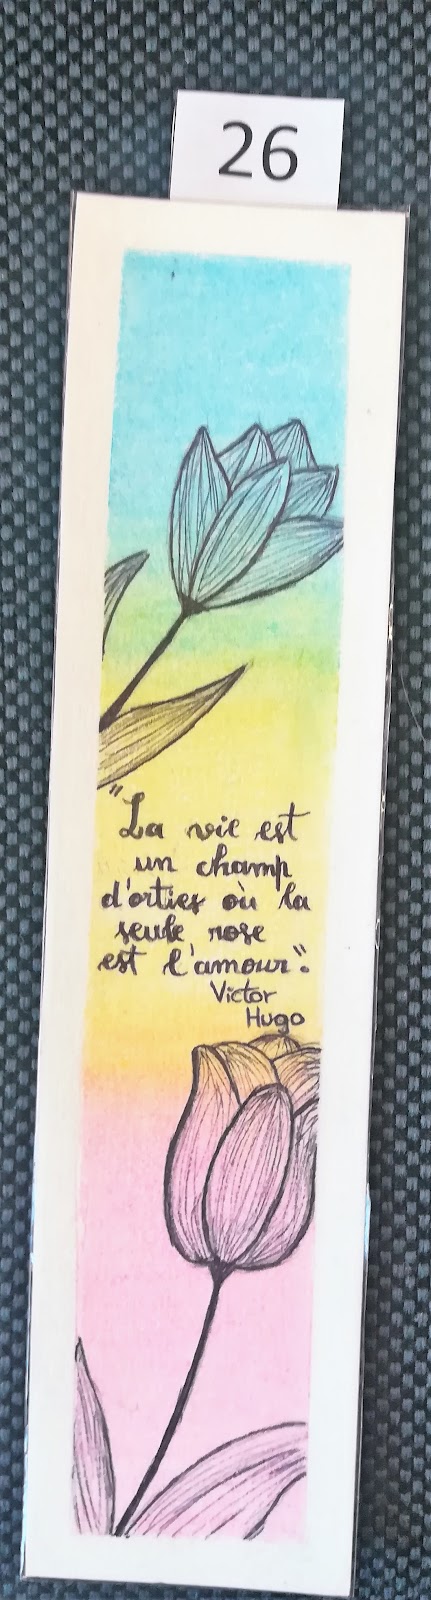 26
"La vie est
un champ
d'orties où la
seule rose
est l'amour".
Victor
Hugo